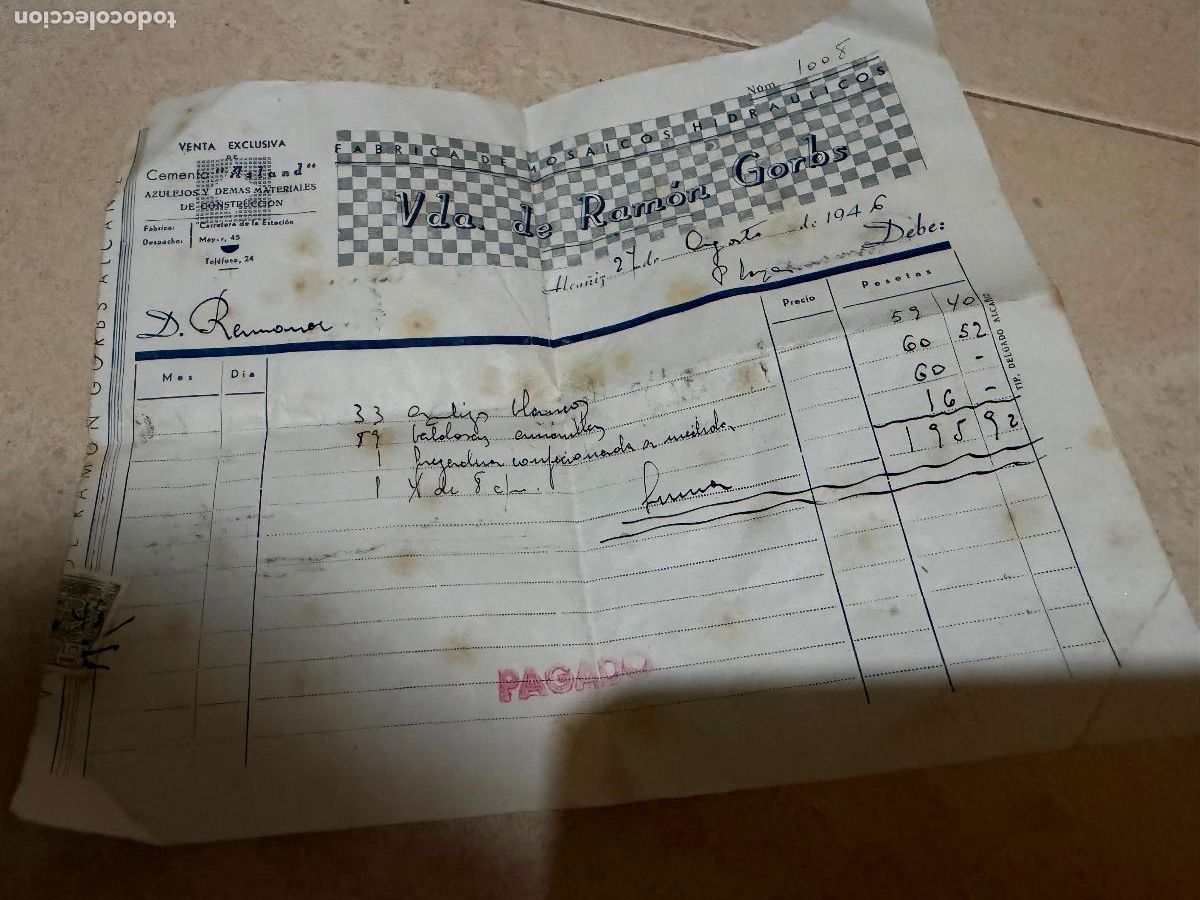 todocoleccion
Núm. 1008
VENTA EXCLUSIVA
DE
Cemento "Asland"
AZULEJOS Y DEMAS MATERIALES
DE CONSTRUCCION
Fábrica: Carretera de la Estación
Despacho: Mayor, 45
Teléfono, 24
FABRICA DE MOSAICOS HIDRAULICOS
Vda. de Ramón Gorbs
Alcañiz 27 de Agosto de 1946
D. Debe:
Mes Dia Precio Pesetas
33 blancos 59 40
89 baldosas amarillas 60 52
1 fregadera confeccionada a medida 60 -
1 de 8 c/m. 16 -
Suma 195 92
PAGADO
TIP. DELGADO ALCAÑIZ
DE RAMÓN GORBS ALCAÑ
15